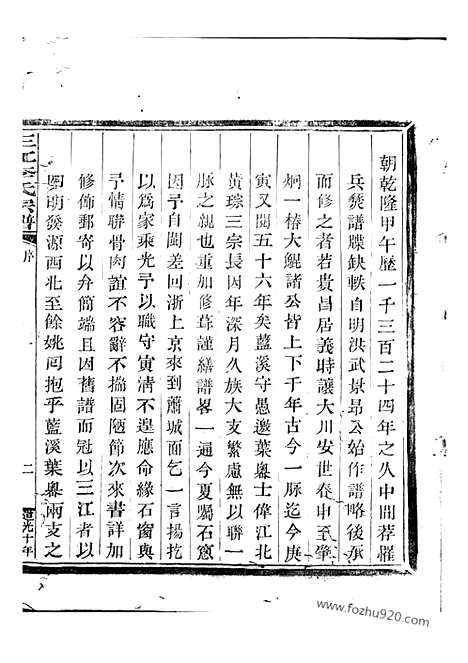 朝乾隆甲午歷一千三百二十四年之久中間荐罹
兵燹譜牒缺軼自明洪武景昂公始作譜略後承
而修之者若貴昌居義時讓大川安世春申至肇
炯一椿大鯤諸公皆上下千年古今一脉迄今庚
寅又閱五十六年矣藍溪守愚邀葉粵士偉江北
黃琮三宗長因年深月久族大支繁慮無以聯一
脉之親也重加修葺謹繕譜畧一通今夏囑石窻
因予自閩差回浙上京來到蕭城面乞一言揚扢
以爲家乘光予以職守寅清不遑應命緣石窗與
予情聯骨肉誼不容辭不揣固陋節次來書詳加
修飾郵寄以弁簡端且因舊譜而冠以三江者以
四明發源西北至餘姚囘抱乎藍溪葉粵兩支之
三江李氏宗譜
序
二
道光十年
www.fozhu920.com